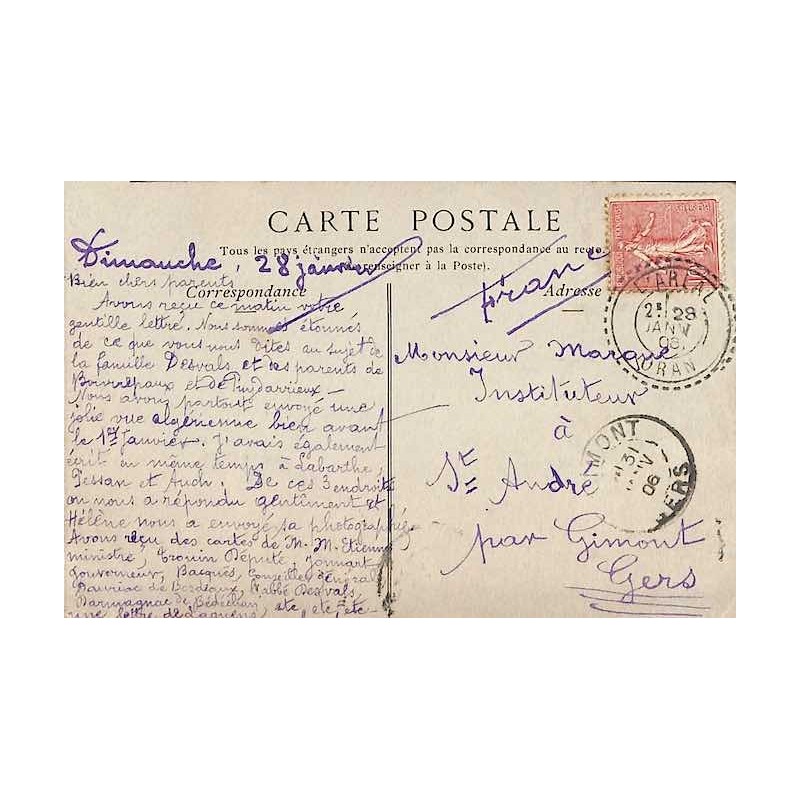 CARTE POSTALE
Tous les pays étrangers n'acceptent pas la correspondance au recto.
renseigner à la Poste).
Correspondance
Adresse
Dimanche, 28 janvier
Bien chers parents
Avons reçu ce matin votre
gentille lettre. Nous sommes étonnés
de ce que vous nous dites au sujet de
la famille Desvals et ses parents de
et de Puydarrieux —
Nous avons partout envoyé une
jolie vue algérienne bien avant
le 1er Janvier. J'avais également
écrit en même temps à Labarthe,
Tessan et Auch. De ces 3 endroits
on nous a répondu gentîment et
Hélène nous a envoyé sa photographie
Avons reçu des cartes de M. M. Etienne
ministre, Trouin Député, Jonnart
Gouverneur, Bacqués, Conseiller Général
de Bordeaux, l'abbé Desvals,
Darmagnac de Bédéchan, etc, etc, etc —
une lettre de
France
Monsieur Marque
Instituteur
à
St André
par Gimont
Gers
ARLAL
28
JANV
06
ORAN
GIMONT
31
JANV
06
GERS